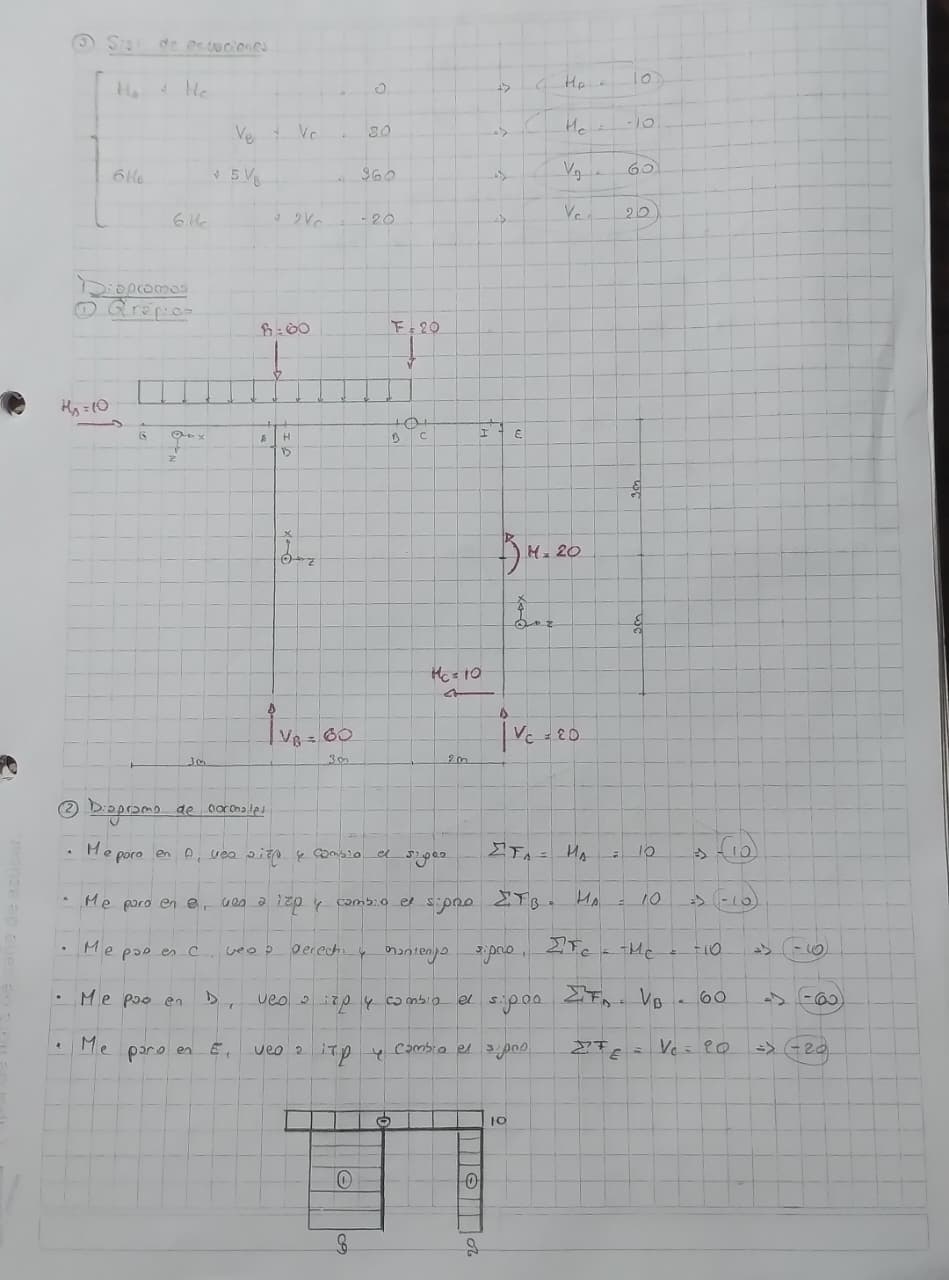 ③ Sist de ecuaciones
HA + HC = 0 => HA = 10
VB + VC = 80 => HC = -10
6HA + 5VB = 360 => VB = 60
6HC + 2VC = -20 => VC 20
Diagramas
① Gráfico
R=60 F=20
HA=10
G x A H B C I E
z D
3m
x
z
M=20
x
z
3m
HC=10
VB=60 VC=20
3m 3m 2m
② Diagrama de normales
· Me paro en A, veo a izq y cambio el signo ΣFA = HA = 10 => -10
· Me paro en B, veo a izq y cambio el signo ΣFB = HA = 10 => -10
· Me paro en C, veo a derech y mantengo signo, ΣFC = -HC = -10 => -10
· Me paro en D, veo a izq y cambio el signo ΣFD = VB = 60 => -60
· Me paro en E, veo a izq y cambio el signo ΣFE = VC = 20 => -20
10